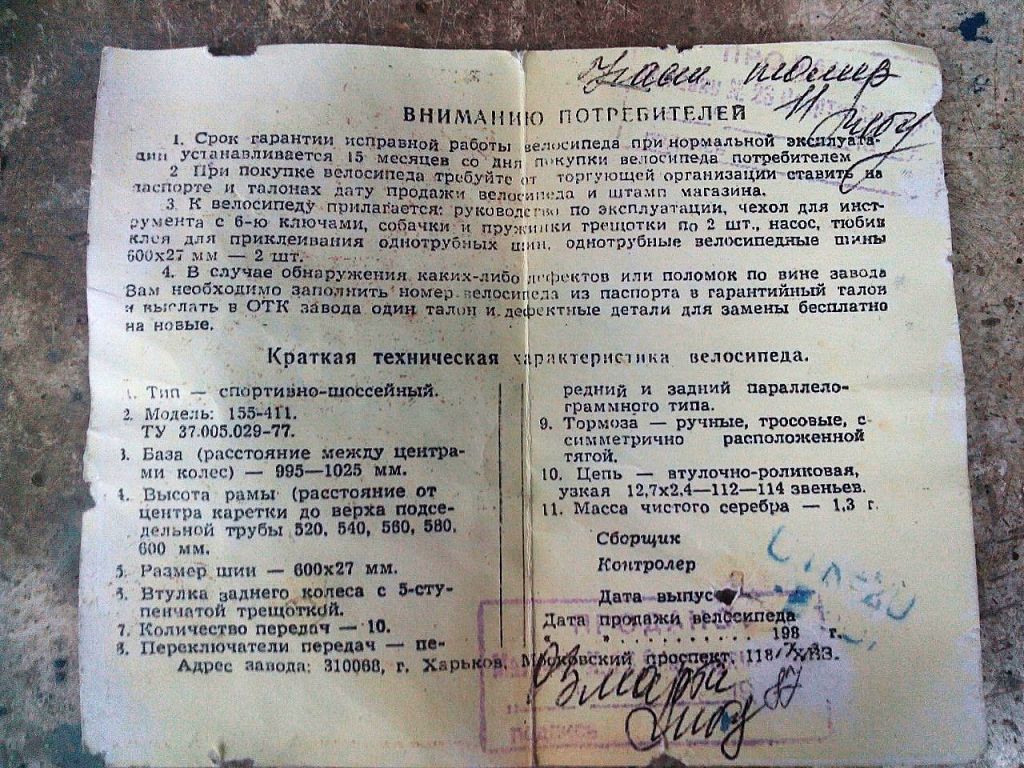 ВНИМАНИЮ ПОТРЕБИТЕЛЕЙ
1. Срок гарантии исправной работы велосипеда при нормальной эксплуата-
ции устанавливается 15 месяцев со дня покупки велосипеда потребителем
2 При покупке велосипеда требуйте от торгующей организации ставить на
паспорте и талонах дату продажи велосипеда и штамп магазина.
3. К велосипеду прилагается: руководство по эксплуатации, чехол для инст-
румента с 6-ю ключами, собачки и пружинки трещотки по 2 шт., насос, тюбик
клея для приклеивания однотрубных шин, однотрубные велосипедные шины
600х27 мм — 2 шт.
4. В случае обнаружения каких-либо дефектов или поломок по вине завода
Вам необходимо заполнить номер велосипеда из паспорта в гарантийный талон
и выслать в ОТК завода один талон и дефектные детали для замены бесплатно
на новые.
Краткая техническая характеристика велосипеда.
1. Тип — спортивно-шоссейный.
2. Модель: 155-411.
ТУ 37.005.029-77.
3. База (расстояние между центра-
ми колес) — 995—1025 мм.
4. Высота рамы (расстояние от
центра каретки до верха подсе-
дельной трубы 520, 540, 560, 580,
600 мм.
5. Размер шин — 600х27 мм.
6. Втулка заднего колеса с 5-сту-
пенчатой трещоткой.
7. Количество передач — 10.
8. Переключатели передач — пе-
редний и задний параллело-
граммного типа.
9. Тормоза — ручные, тросовые, с
симметрично расположенной
тягой.
10. Цепь — втулочно-роликовая,
узкая 12,7х2,4—112—114 звеньев.
11. Масса чистого серебра — 1,3 г.
Сборщик
Контролер
Дата выпус
Дата продажи велосипеда
198 г.
Адрес завода: 310068, г. Харьков, Московский проспект, 118/7 ХВЗ.
ПРОДАНО
марта 87
подпись